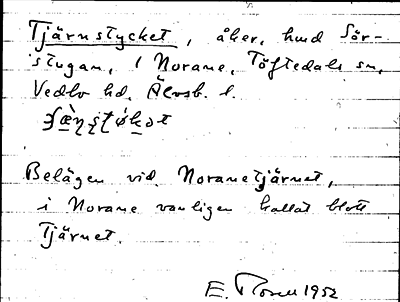 Tjärnstycket, åker, hmd Sör-
stugan, 1 Norane, Töftedals sn,
Vedbo hd, Älvsb. l.
Belägen vid Noranetjärnet,
i Norane vanligen kallat blott
Tjärnet.
E. 1952